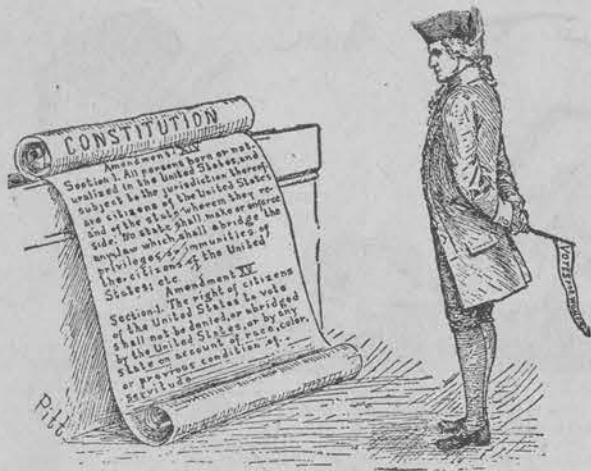 CONSTITUTION
Amendment
Section 1. All persons born or nat-
uralized in the United States, and
subject to the jurisdiction thereof,
are citizens of the United States
and of the state wherein they re-
side. No state shall make or enforce
any law which shall abridge the
privileges or immunities of
the citizens of the United
States; etc
Amendment XV
Section 1. The right of citizens
of the United States to vote
shall not be denied, or abridged
by the United States, or by any
state on account of race, color,
or previous condition of
servitude
VOTES
Pitt